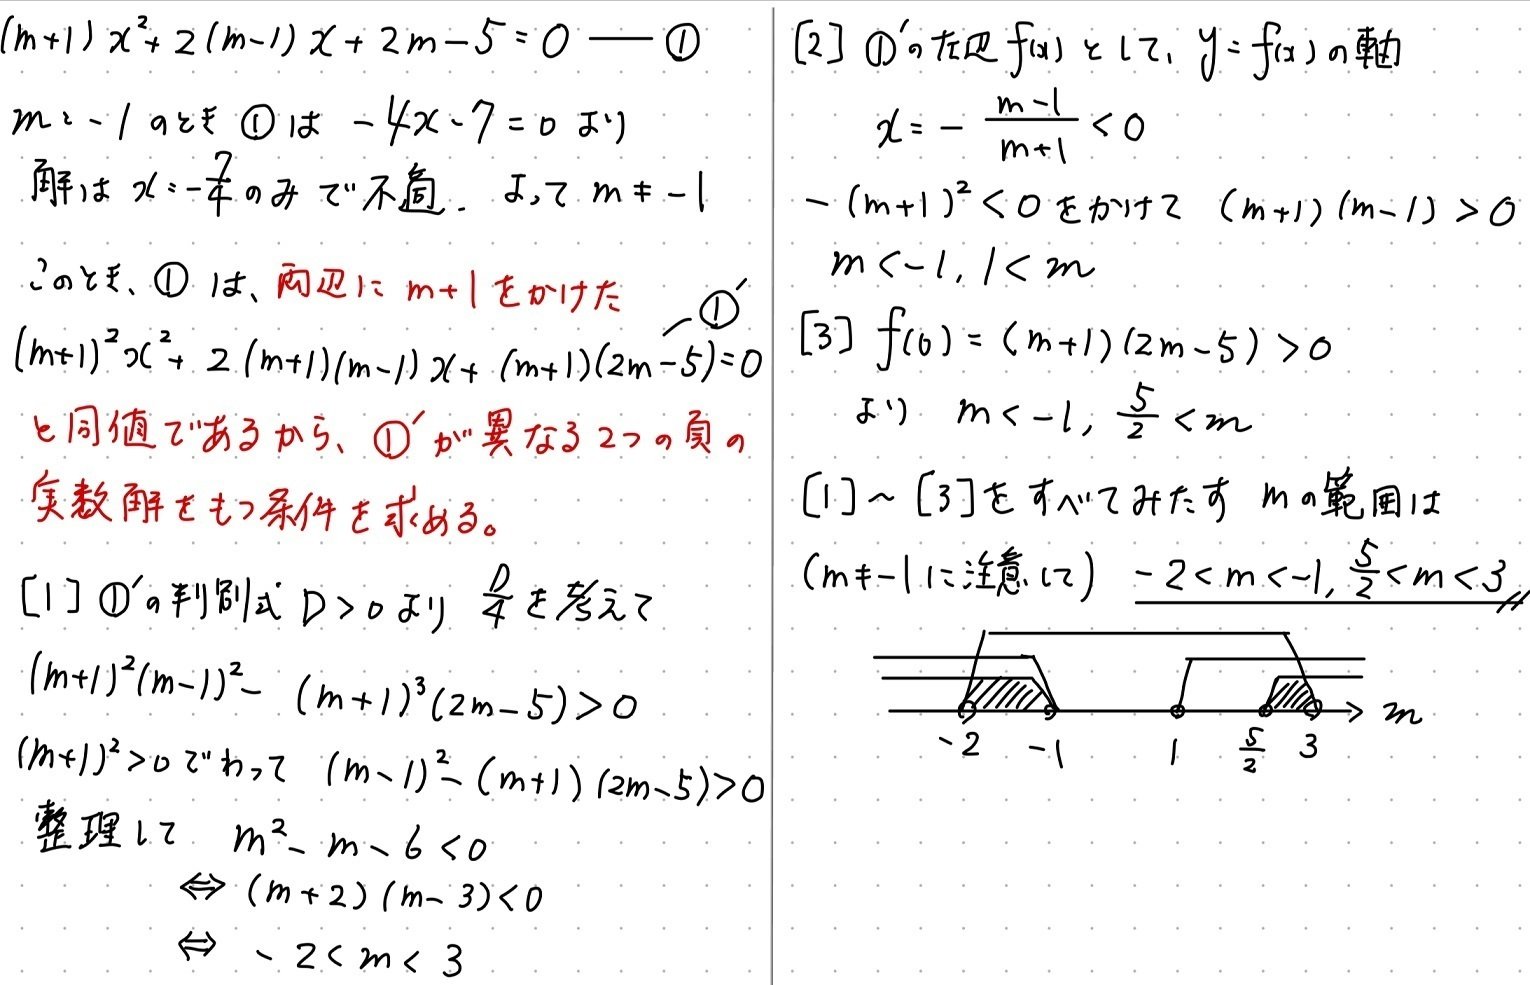 (m+1)x²+2(m-1)x+2m-5=0 — ①
m=-1のとき ①は -4x-7=0 より
解は x=-7/4 のみで不適. よって m≠-1
このとき、①は、両辺に m+1をかけた
(m+1)²x²+2(m+1)(m-1)x+(m+1)(2m-5)=0 — ①′
と同値であるから、①′が異なる2つの負の
実数解をもつ条件を求める。
[1] ①′の判別式 D>0より D/4 を考えて
(m+1)²(m-1)²-(m+1)³(2m-5)>0
(m+1)²>0でわって (m-1)²-(m+1)(2m-5)>0
整理して m²-m-6<0
⇔ (m+2)(m-3)<0
⇔ -2<m<3
[2] ①′の左辺 f(x) として、y=f(x)の軸
x=-(m-1)/(m+1)<0
-(m+1)²<0をかけて (m+1)(m-1)>0
m<-1, 1<m
[3] f(0)=(m+1)(2m-5)>0
より m<-1, 5/2<m
[1]〜[3]をすべてみたす mの範囲は
(m≠-1に注意して) -2<m<-1, 5/2<m<3
-2 -1 1 5/2 3 m